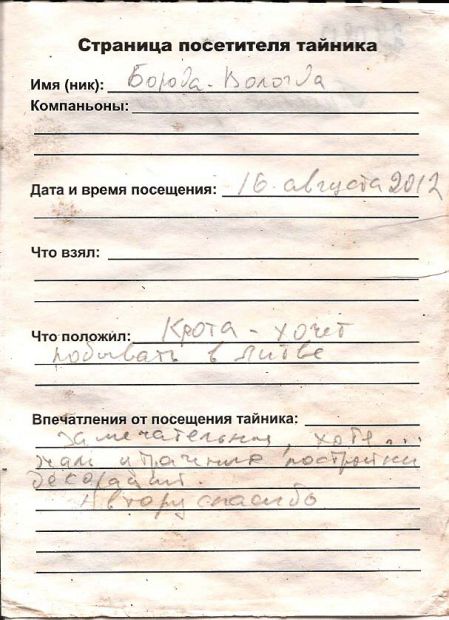 Страница посетителя тайника
Имя (ник): Борода-Вологда
Компаньоны:
Дата и время посещения: 16 августа 2012
Что взял:
Что положил: Крота - хочет
побывать в Литве
Впечатления от посещения тайника:
замечательные, хотя...
жаль постройки
декораций.
Автору спасибо